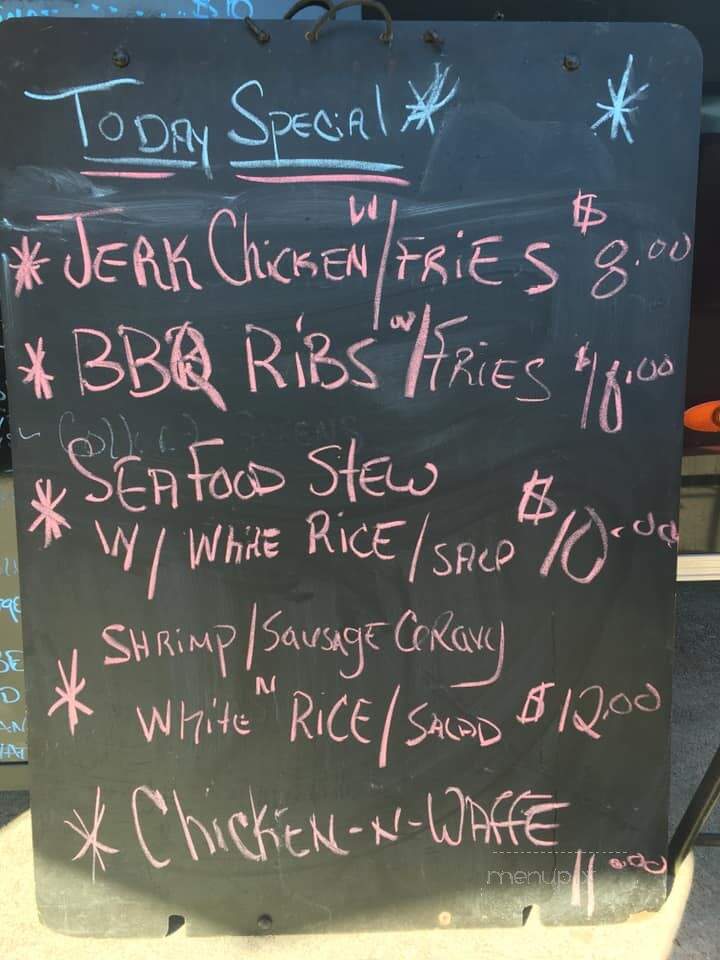 $10
TODAY SPECIAL
* JERK CHICKEN W/FRIES $8.00
* BBQ RIBS W/FRIES
SEAFOOD STEW
* W/ WHITE RICE/SALD $10.00
SHRIMP/SAUSAGE GRAVY
* WHITE N RICE/SALAD $12.00
* CHICKEN-N-WAFFE
11.00
menupix